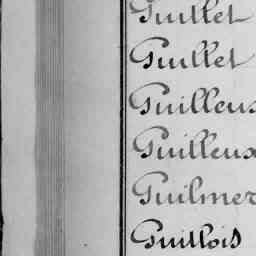 Guillet
Guillet
Guilleux
Guilleux
Guilmer
Guillois